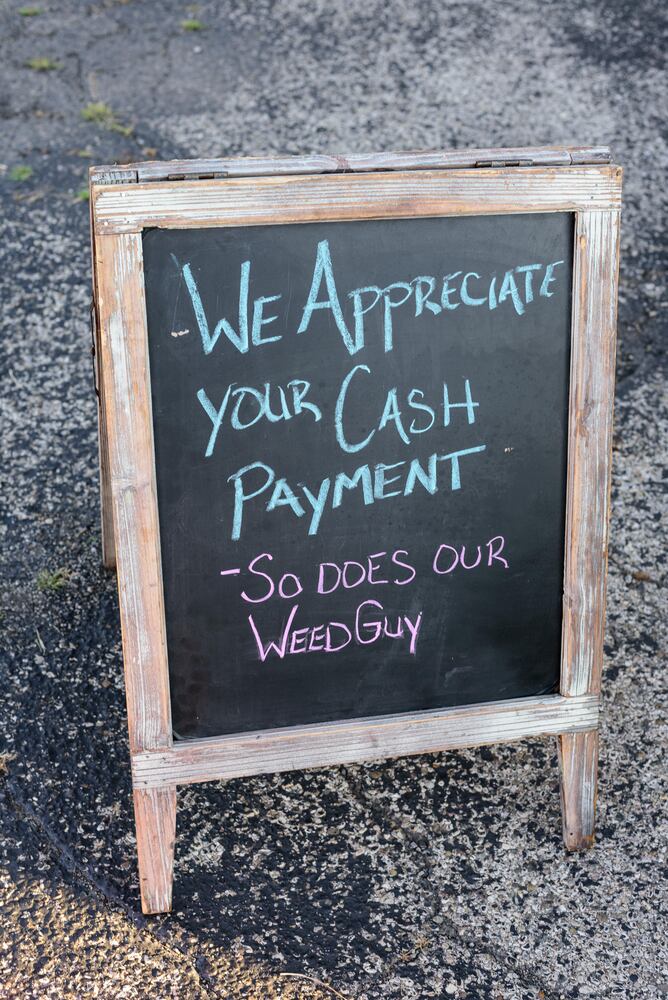 WE APPRECIATE
YOUR CASH
PAYMENT
- SO DOES OUR
WEED GUY